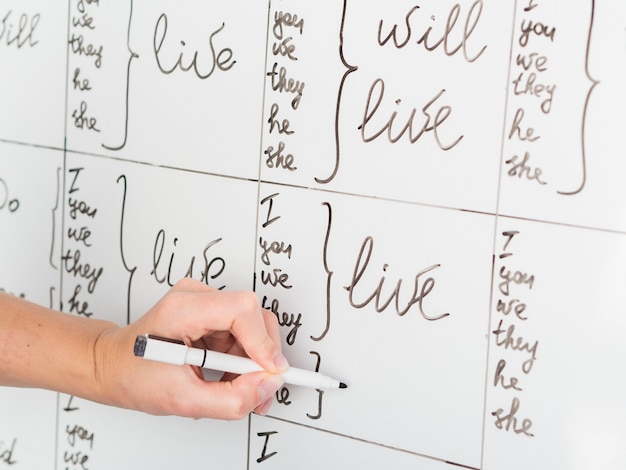 you
we
they
he
she
live
you
we
they
he
she
will
live
you
we
they
he
she
I
you
we
they
he
live
I
you
we
they
live
I
you
we
they
he
she
I
you
we
I